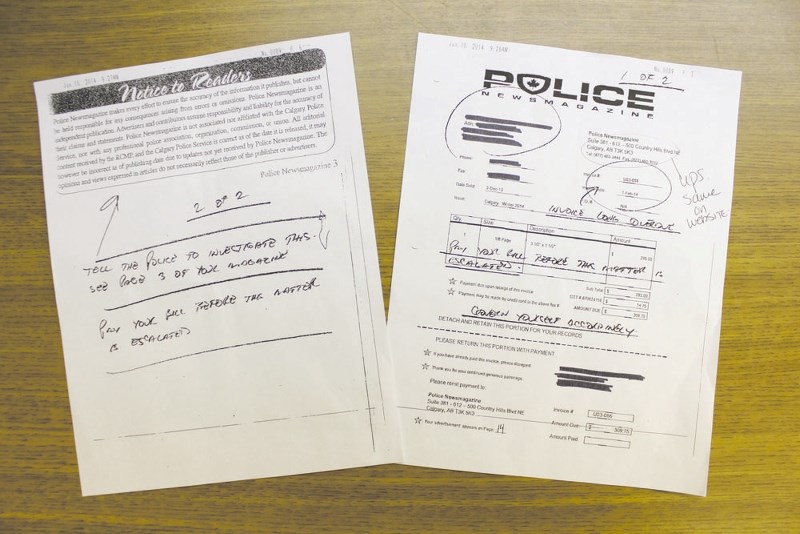 Jan. 10 2014 9:27AM No. 0009 P. 2
Notice to Readers
Police Newsmagazine makes every effort to ensure the accuracy of the information it publishes, but cannot
be held responsible for any consequences arising from errors or omissions. Police Newsmagazine is an
independent publication. Advertisers and contributors assume responsibility and liability for the accuracy of
their claims and statements. Police Newsmagazine is not associated nor affiliated with the Calgary Police
Service, nor with any professional police association, organization, commission, or union. All editorial
content received by the RCMP, and the Calgary Police Service is correct as of the date it is released, it may
however be incorrect as of publishing date due to updates not yet received by Police Newsmagazine. The
opinions and views expressed in articles do not necessarily reflect those of the publisher or advertisers.
Police Newsmagazine 3
2 OF 2
TELL THE POLICE TO INVESTIGATE THIS.
SEE PAGE 3 OF YOUR MAGAZINE
PAY YOUR BILL BEFORE THE MATTER
IS ESCALATED
Jan. 10 2014 9:26AM No. 0009 P. 1
1 OF 2
POLICE
NEWSMAGAZINE
Attn:
Phone:
Fax:
Date Sold:
Issue: Calgary - Winter 2014
Police Newsmagazine
Suite 381 - 612 - 500 Country Hills Blvd NE
Calgary, AB T3K 5K3
Invoice #
N/A
UPS
SAME
ON
WEBSITE
INVOICE LONG OVERDUE
Qty Size Description Amount
1 1/8 Page $
PAY YOUR BILL BEFORE THE MATTER IS
ESCALATED.
Sub Total $
Payment due upon receipt of this invoice
Payment may be made by credit card in the above fax #
AMOUNT DUE $
GOVERN YOURSELF ACCORDINGLY
DETACH AND RETAIN THIS PORTION FOR YOUR RECORDS
PLEASE RETURN THIS PORTION WITH PAYMENT
If you have already paid this invoice, please disregard
Thank you for your continued generous patronage.
Please remit payment to:
Police Newsmagazine
Suite 381 - 612 - 500 Country Hills Blvd NE
Calgary, AB T3K 5K3
Invoice #
Amount Due $
Amount Paid
Your advertisement appears on Page 14